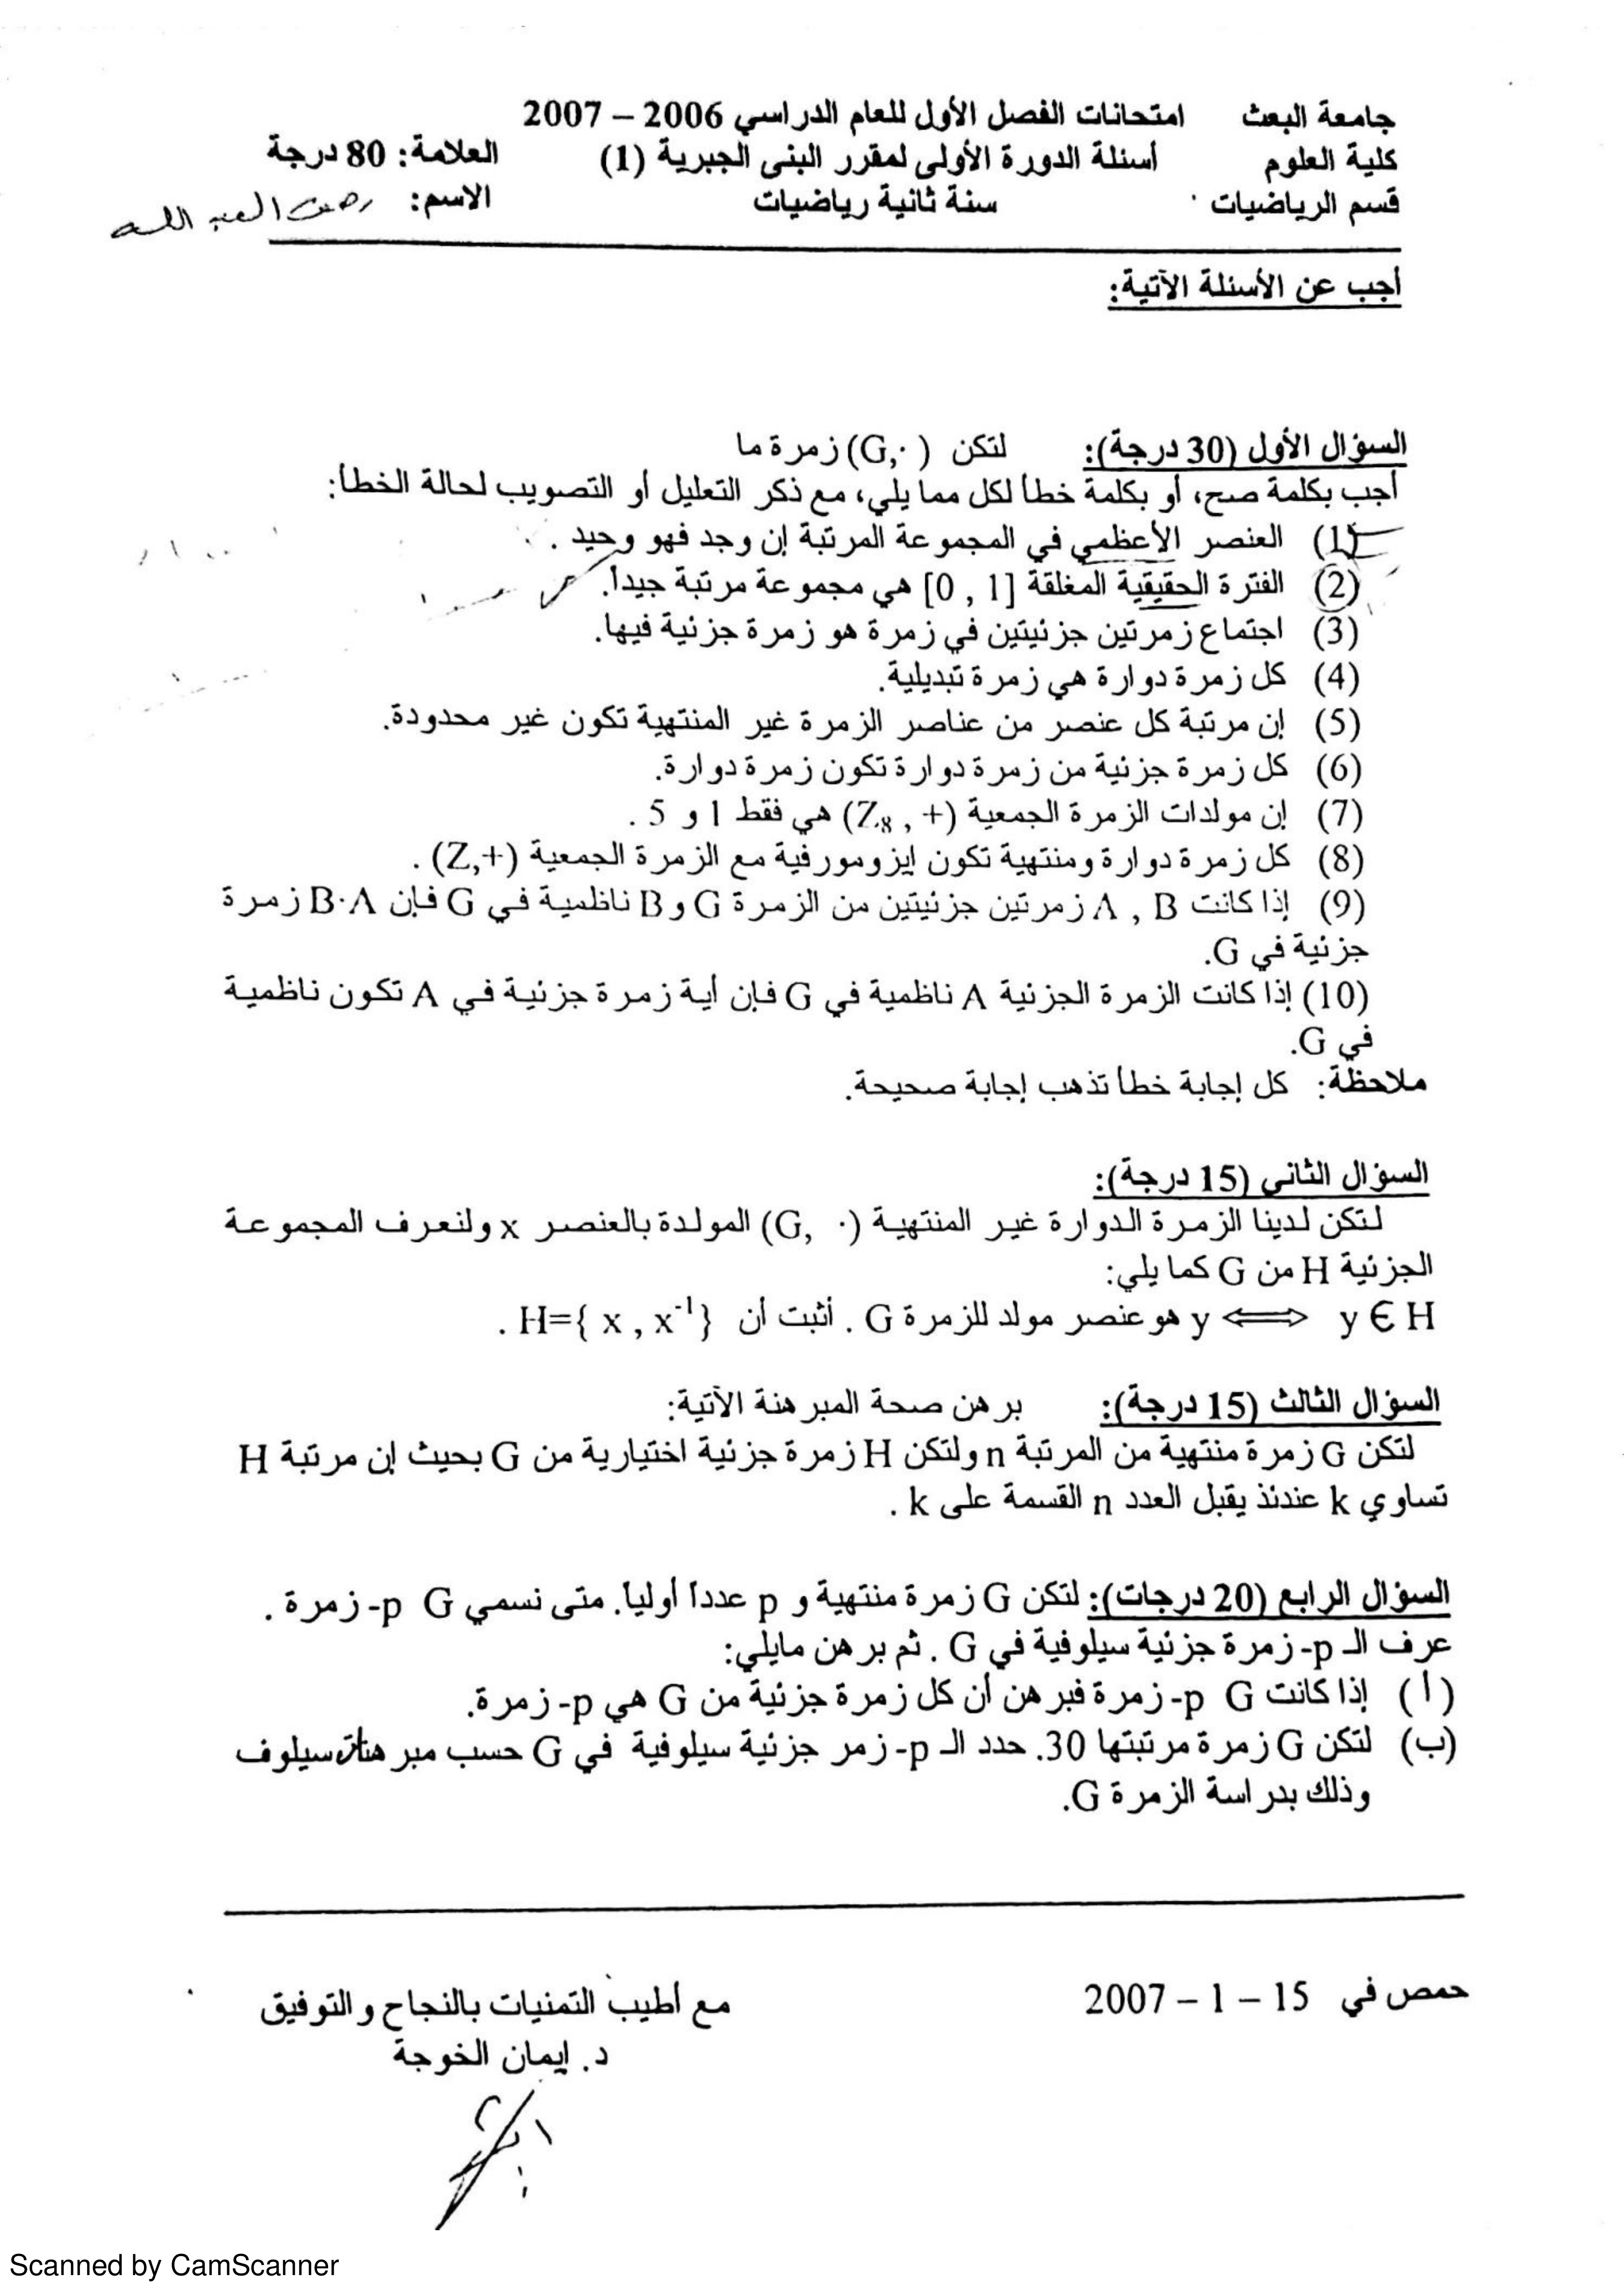 جامعة البعث امتحانات الفصل الأول للعام الدراسي 2006 – 2007
كلية العلوم أسئلة الدورة الأولى لمقرر البنى الجبرية (1) العلامة: 80 درجة
قسم الرياضيات سنة ثانية رياضيات الاسم: العبد الله
أجب عن الأسئلة الآتية:
السؤال الأول (30 درجة): لتكن (G,·) زمرة ما
أجب بكلمة صح، أو بكلمة خطأ لكل مما يلي، مع ذكر التعليل أو التصويب لحالة الخطأ:
(1) العنصر الأعظمي في المجموعة المرتبة إن وجد فهو وحيد .
(2) الفترة الحقيقية المغلقة [0 , 1] هي مجموعة مرتبة جيداً.
(3) اجتماع زمرتين جزئيتين في زمرة هو زمرة جزئية فيها.
(4) كل زمرة دوارة هي زمرة تبديلية.
(5) إن مرتبة كل عنصر من عناصر الزمرة غير المنتهية تكون غير محدودة.
(6) كل زمرة جزئية من زمرة دوارة تكون زمرة دوارة.
(7) إن مولدات الزمرة الجمعية (Z₈ , +) هي فقط 1 و 5 .
(8) كل زمرة دوارة ومنتهية تكون ايزومورفية مع الزمرة الجمعية (Z,+) .
(9) إذا كانت A , B زمرتين جزئيتين من الزمرة G و B ناظمية في G فإن B·A زمرة
جزئية في G.
(10) إذا كانت الزمرة الجزئية A ناظمية في G فإن أية زمرة جزئية في A تكون ناظمية
في G.
ملاحظة: كل إجابة خطأ تذهب إجابة صحيحة.
السؤال الثاني (15 درجة):
لتكن لدينا الزمرة الدوارة غير المنتهية (G, ·) المولدة بالعنصر x ولنعرف المجموعة
الجزئية H من G كما يلي:
y ∈ H ⟺ y هو عنصر مولد للزمرة G . أثبت أن H={ x , x⁻¹} .
السؤال الثالث (15 درجة): برهن صحة المبرهنة الآتية:
لتكن G زمرة منتهية من المرتبة n ولتكن H زمرة جزئية اختيارية من G بحيث إن مرتبة H
تساوي k عندئذ يقبل العدد n القسمة على k .
السؤال الرابع (20 درجات): لتكن G زمرة منتهية و p عددا أوليا. متى نسمي G p- زمرة .
عرف الـ p- زمرة جزئية سيلوفية في G . ثم برهن مايلي:
(أ) إذا كانت G p- زمرة فبرهن أن كل زمرة جزئية من G هي p- زمرة.
(ب) لتكن G زمرة مرتبتها 30. حدد الـ p- زمر جزئية سيلوفية في G حسب مبرهنات سيلوف
وذلك بدراسة الزمرة G.
حمص في 15 – 1 – 2007 مع أطيب التمنيات بالنجاح والتوفيق
د. إيمان الخوجة
Scanned by CamScanner